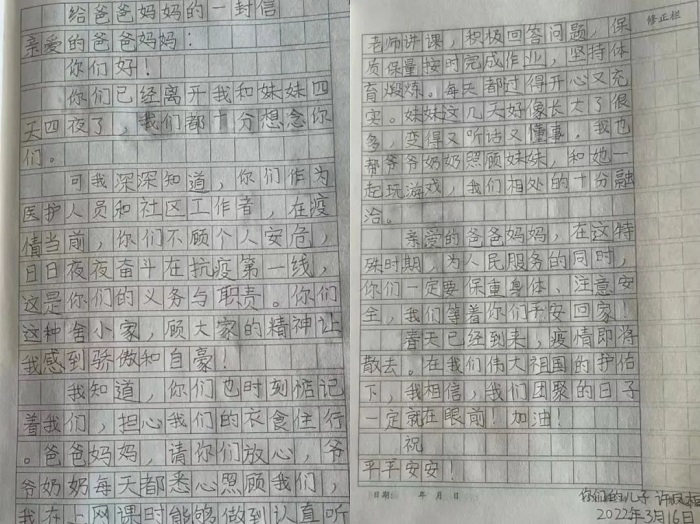 给爸爸妈妈的一封信
亲爱的爸爸妈妈：
你们好！
你们已经离开我和妹妹四
天四夜了，我们都十分想念你
们。
可我深深知道，你们作为
医护人员和社区工作者，在疫
情当前，你们不顾个人安危，
日日夜夜奋斗在抗疫第一线，
这是你们的义务与职责。你们
这种舍小家，顾大家的精神让
我感到骄傲和自豪！
我知道，你们也时刻惦记
着我们，担心我们的衣食住行
。爸爸妈妈，请你们放心，爷
爷奶奶每天都悉心照顾我们，
我在上网课时能够做到认真听
修正栏
老师讲课，积极回答问题，保
质保量按时完成作业，坚持体
育煅炼。每天都过得开心又充
实。妹妹这几天好像长大了很
多，变得又听话又懂事，我也
帮爷爷奶奶照顾妹妹，和她一
起玩游戏，我们相处的十分融
洽。
亲爱的爸爸妈妈，在这特
殊时期，为人民服务的同时，
你们一定要保重身体、注意安
全，我们等着你们平安回家！
春天已经到来，疫情即将
散去。在我们伟大祖国的护佑
下，我相信，我们团聚的日子
一定就在眼前！加油！
祝
平平安安！
日期： 年 月 日
你们的儿子 许
2022年3月16日